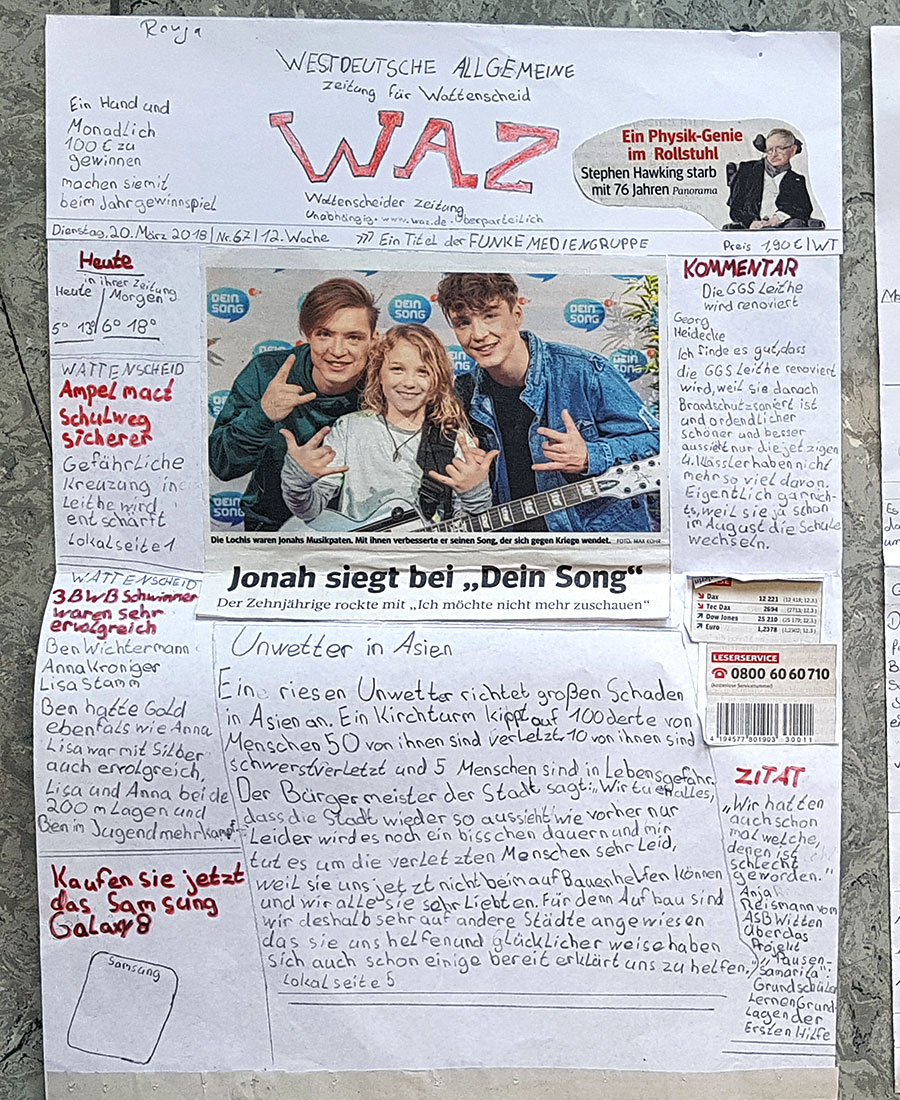 Ronja
WESTDEUTSCHE ALLGEMEINE
Zeitung für Wattenscheid
WAZ
Wattenscheider Zeitung
Unabhängig · www.waz.de · überparteilich
Ein Hund und
Monadlich
100 € zu
gewinnen
machen sie mit
beim Jahrgewinnspiel
Ein Physik-Genie
im Rollstuhl
Stephen Hawking starb
mit 76 Jahren Panorama
Dienstag, 20. März 2018 | Nr. 67 | 12. Woche >>> Ein Titel der FUNKE MEDIENGRUPPE Preis 1,90 € | WT
Heute
in ihrer Zeitung
Heute Morgen
5° 13° 6° 18°
WATTENSCHEID
Ampel mact
Schulweg
sicherer
Gefährliche
Kreuzung in
Leithe wird
entschärft
Lokalseite 1
WATTENSCHEID
3 BWB Schwimmer
waren sehr
ervolgreich
Ben Wichtermann
Anna Kroniger
Lisa Stamm
Ben hatte Gold
ebenfals wie Anna
Lisa war mit Silber
auch ervolgreich,
Lisa und Anna beide
200 m Lagen und
Ben im Jugendmehrkampf
Kaufen sie jetzt
das Samsung
Galaxy 8
Samsung
DEIN SONG
DEIN SONG
DEIN SONG
DEIN
DEIN SONG
Die Lochis waren Jonahs Musikpaten. Mit ihnen verbesserte er seinen Song, der sich gegen Kriege wendet. FOTO: MAX KOHR
Jonah siegt bei „Dein Song“
Der Zehnjährige rockte mit „Ich möchte nicht mehr zuschauen“
Unwetter in Asien
Ein riesen Unwetter richtet großen Schaden
in Asien an. Ein Kirchturm kippt auf 100derte von
Menschen 50 von ihnen sind verletzt 10 von ihnen sind
schwerstverletzt und 5 Menschen sind in Lebensgefahr.
Der Bürgermeister der Stadt sagt: „Wir tuen alles,
dass die Stadt wieder so aussieht wie vorher nur
Leider wird es noch ein bisschen dauern und mir
tut es um die verletzten Menschen sehr Leid,
weil sie uns jetzt nicht beim auf Bauen helfen können
und wir alle sie sehr Liebten. Für dem Aufbau sind
wir deshalb sehr auf andere Städte angewiesen
das sie uns helfen und glücklicher weise haben
sich auch schon einige bereit erklärt uns zu helfen.
Lokalseite 5
KOMMENTAR
Die GGS Leithe
wird renoviert
Georg
Heidecke
Ich finde es gut, dass
die GGS Leithe renoviert
wird, weil sie danach
Brandschutzsaniert ist
und ordendlicher
schöner und besser
aussieht nur die jetzigen
4. Klässler haben nicht
mehr so viel davon.
Eigentlich garnich-
ts, weil sie ja schon
im August die Schule
wechseln.
Dax 12 221 (12 418; 12.3.)
Tec Dax 2694 (2713; 12.3.)
Dow Jones 25 210 (25 179; 12.3.)
Euro 1,2378 (1,2302; 12.3.)
LESERSERVICE
0800 60 60 710
(kostenlose Servicenummer)
4 194577 801903 30011
ZITAT
„Wir hatten
auch schon
mal welche,
denen ist
schlecht
geworden.“
Anja
Reismann vom
ASB Witten
über das
Projekt
„Pausen-
Samarita“:
Grundschüler
Lernen Grund-
lagen der
Ersten Hilfe